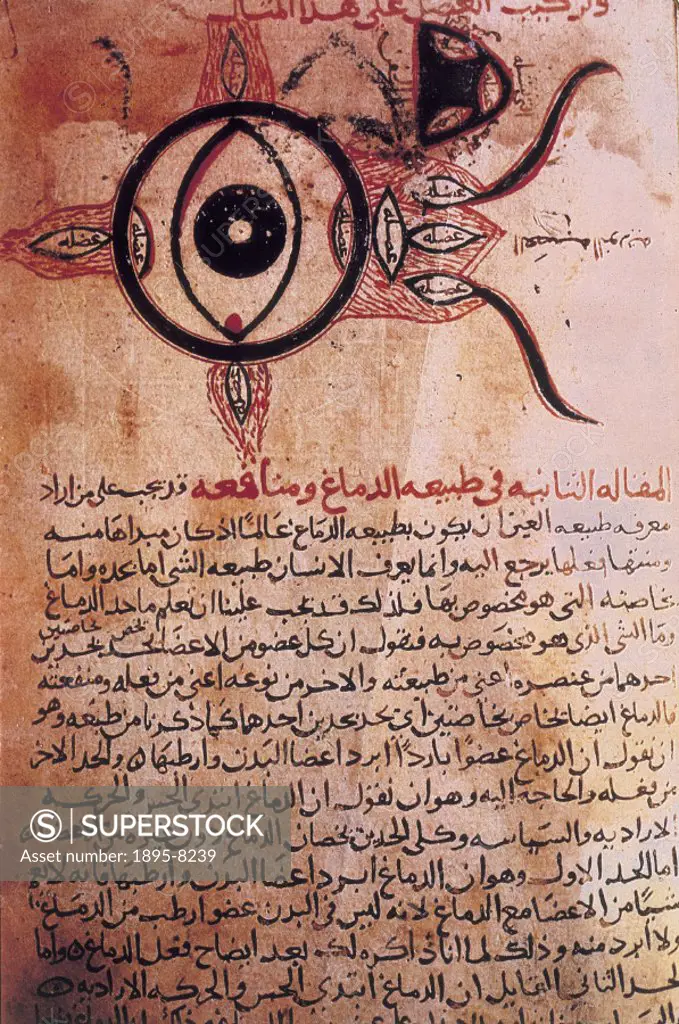 وتركيب العضل على هذا المثال
عضله
عضله
عضله
عضله
عضله
عضله
عضله
عضله
عضله
المقاله الثانيه فى طبيعه الدماغ ومنافعه قد يجب على من اراد
معرفه طبيعه العين ان يكون بطبيعه الدماغ عالمًا اذ كان مبداها منه
ومنتها فعلها يرجع اليه وانما يعرف الانسان طبيعه الشى اما بحده واما
بخاصته التى هو مخصوص بها فلذلك قد يجب علينا ان نعلم ما حد الدماغ
وما الشى الذى هو مخصوص به فنقول ان كل عضو من الاعضا يحد بحدين
يخص خاصتين
احدهما من عنصره اعنى من طبيعته والاخر من نوعه اعنى من فعله ومنفعته
فالدماغ ايضا يخاص بخاصتين اى يحد بحدين احدهما كما ذكرنا من طبيعه وهو
ان نقول ان الدماغ عضوًا باردًا ابرد اعضا البدن وارطبها والحد الاخر
من فعله والحاجه اليه وهو ان نقول ان الدماغ ابتدى الحس والحركه
الاراديه والسياسه وكلى الحدين يخصان الدماغ
اما الحد الاول وهو ان الدماغ ابرد اعضا البدن وارطبها فانه لا يقع
شيا من الاعضا مع الدماغ لانه ليس فى البدن عضو ارطب من الدماغ
ولا ابرد منه وذلك لما انا ذاكره لك بعد ايضاح فعل الدماغ واما
لحد الثانى القايل ان الدماغ ابتدى الحس والحركه الاراديه
SUPERSTOCK
Asset number: 1895-8239